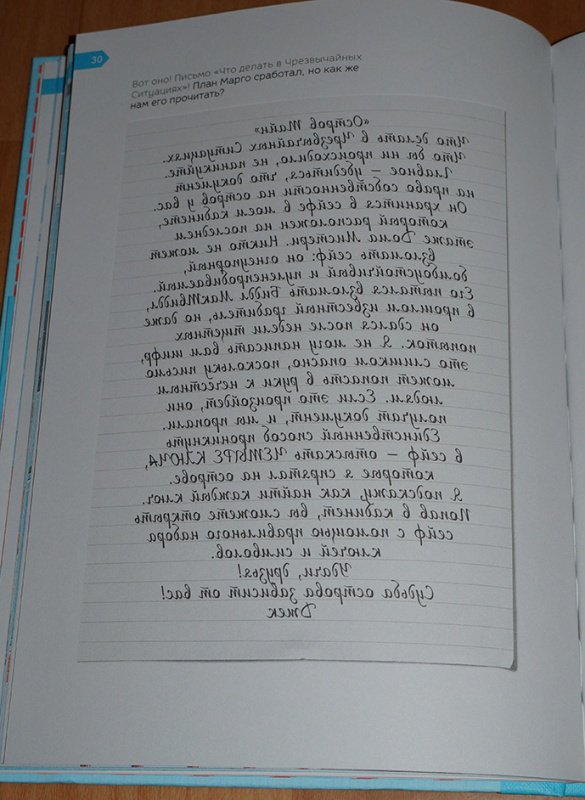 30
Вот оно! Письмо «Что делать в Чрезвычайных
Ситуациях»! План Марго сработал, но как же
нам его прочитать?
«Остров Тайн»
Что делать в Чрезвычайных Ситуациях.
Что бы ни происходило, не паникуйте.
Главное – убедитесь, что документ
на право собственности на остров у вас.
Он хранится в сейфе в моем кабинете,
который расположен на последнем
этаже Дома Мистери. Никто не может
взломать сейф: он огнеупорный,
бомбоустойчивый и пуленепробиваемый.
Его пытался взломать Бидди МакТвидди,
в прошлом известный грабитель, но даже
он сдался после недели тщетных
попыток. Я не могу написать вам шифр,
это слишком опасно, поскольку письмо
может попасть в руки к нечестным
людям. Если это произойдет, они
получат документ, и мы пропали.
Единственный способ проникнуть
в сейф – отыскать ЧЕТЫРЕ КЛЮЧА,
которые я спрятал на острове.
Я подскажу, как найти каждый ключ.
Попав в кабинет, вы сможете открыть
сейф с помощью правильного набора
ключей и символов.
Удачи, друзья!
Судьба острова зависит от вас!
Джек